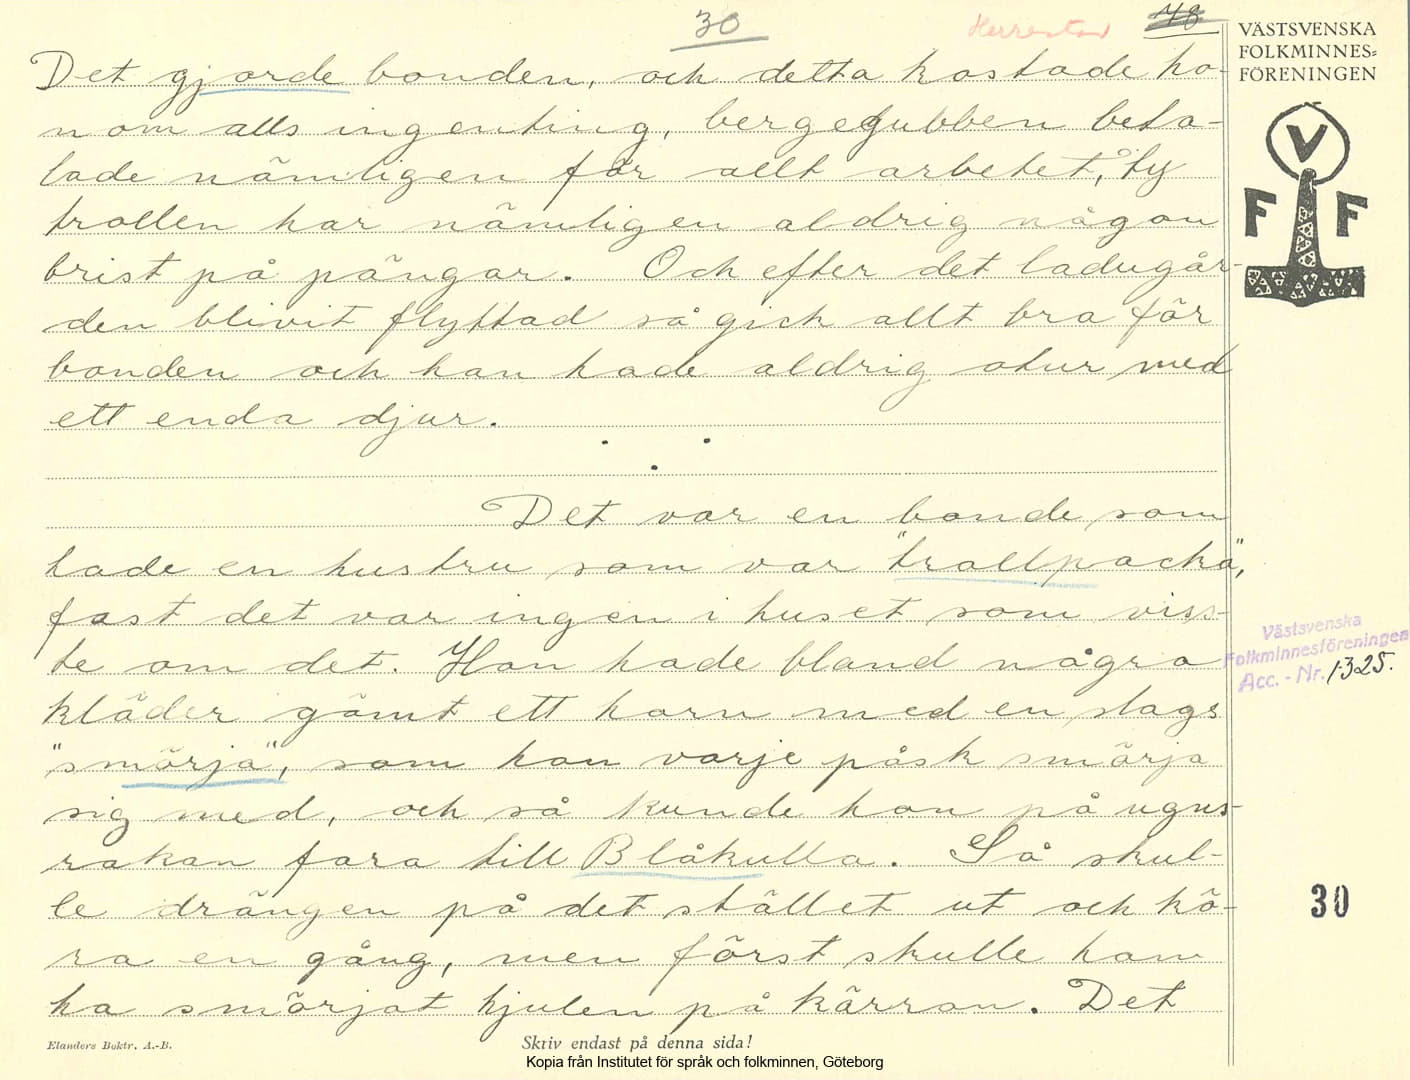 30
Herrestad
48
VÄSTSVENSKA
FOLKMINNES=
FÖRENINGEN
V
F F
Det gjorde bonden, och detta kostade ho-
nom alls ingenting, bergegubben beta-
lade nämligen för allt arbetet, ty
trollen har nämligen aldrig någon
brist på pängar. Och efter det ladugår-
den blivit flyttad så gick allt bra för
bonden och han hade aldrig otur med
ett enda djur.
Det var en bonde som
hade en hustru som var "trollpacka",
fast det var ingen i huset som viss-
te om det. Hon hade bland några
kläder gömt ett horn med en slags
"smörja", som hon varje påsk smörja
sig med, och så kunde hon på ugns-
rakan fara till Blåkulla. Så skul-
le drängen på det stället ut och kö-
ra en gång, men först skulle han
ha smörjat hjulen på kärran. Det
Västsvenska
Folkminnesföreningen
Acc. - Nr. 1325.
30
Elanders Boktr. A.-B.
Skriv endast på denna sida!
Kopia från Institutet för språk och folkminnen, Göteborg